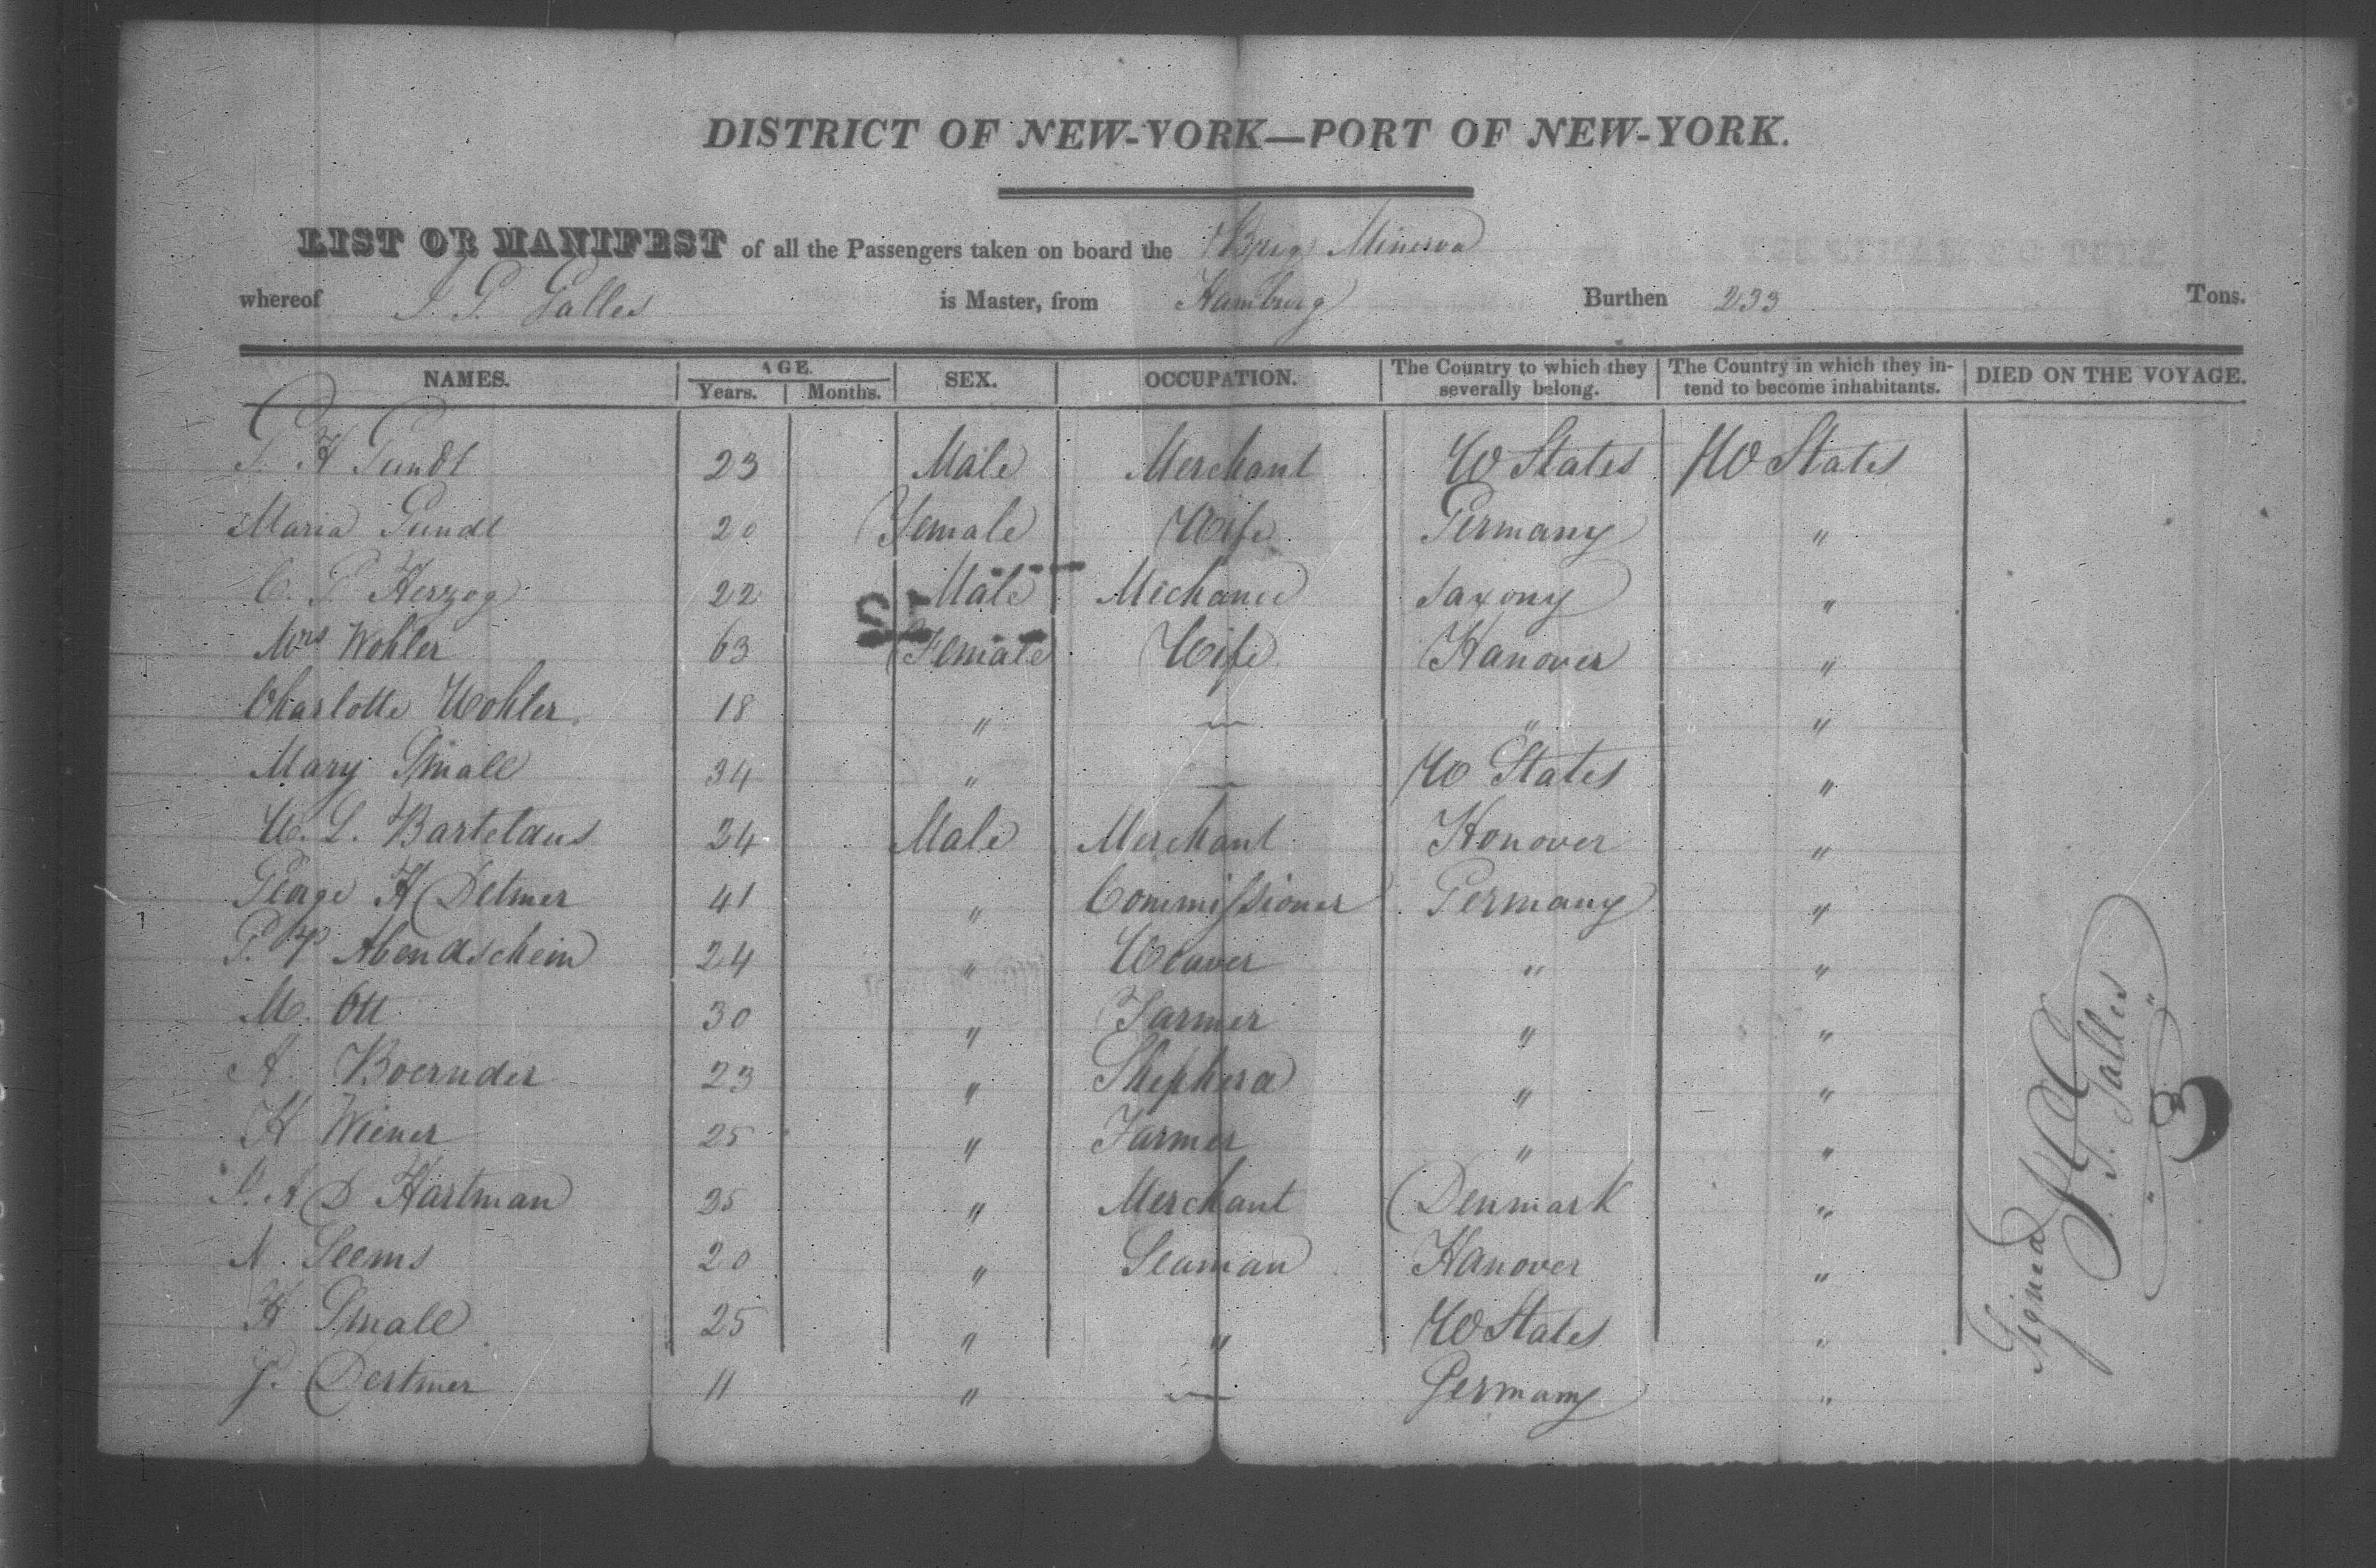 DISTRICT OF NEW-YORK—PORT OF NEW-YORK.
LIST OR MANIFEST of all the Passengers taken on board the Brig Minerva
whereof Galles is Master, from Hamburg Burthen 233 Tons.
NAMES. AGE. Years. Months. SEX. OCCUPATION. The Country to which they severally belong. The Country in which they intend to become inhabitants. DIED ON THE VOYAGE.
H 23 Male Merchant U States U States
Maria 20 Female Wife Germany "
C. Herzog 22 Male Mechanic Saxony "
Mrs Wohler 63 Female Wife Hanover "
Charlotte Wohler 18 " — " "
Mary Small 34 " — U States "
Bartelaus 34 Male Merchant Honover "
George H Detmer 41 " Commissioner Germany "
Abendschein 24 " Weaver " "
M. Ott 30 " Farmer " "
A. Boernder 23 " Shepherd " "
H Wiener 25 " Farmer " "
A D Hartman 25 " Merchant Denmark "
N. Seems 20 " Seaman Hanover "
H Small 25 " " U States "
Destmer 11 " — Germany "
Signed Galles
3